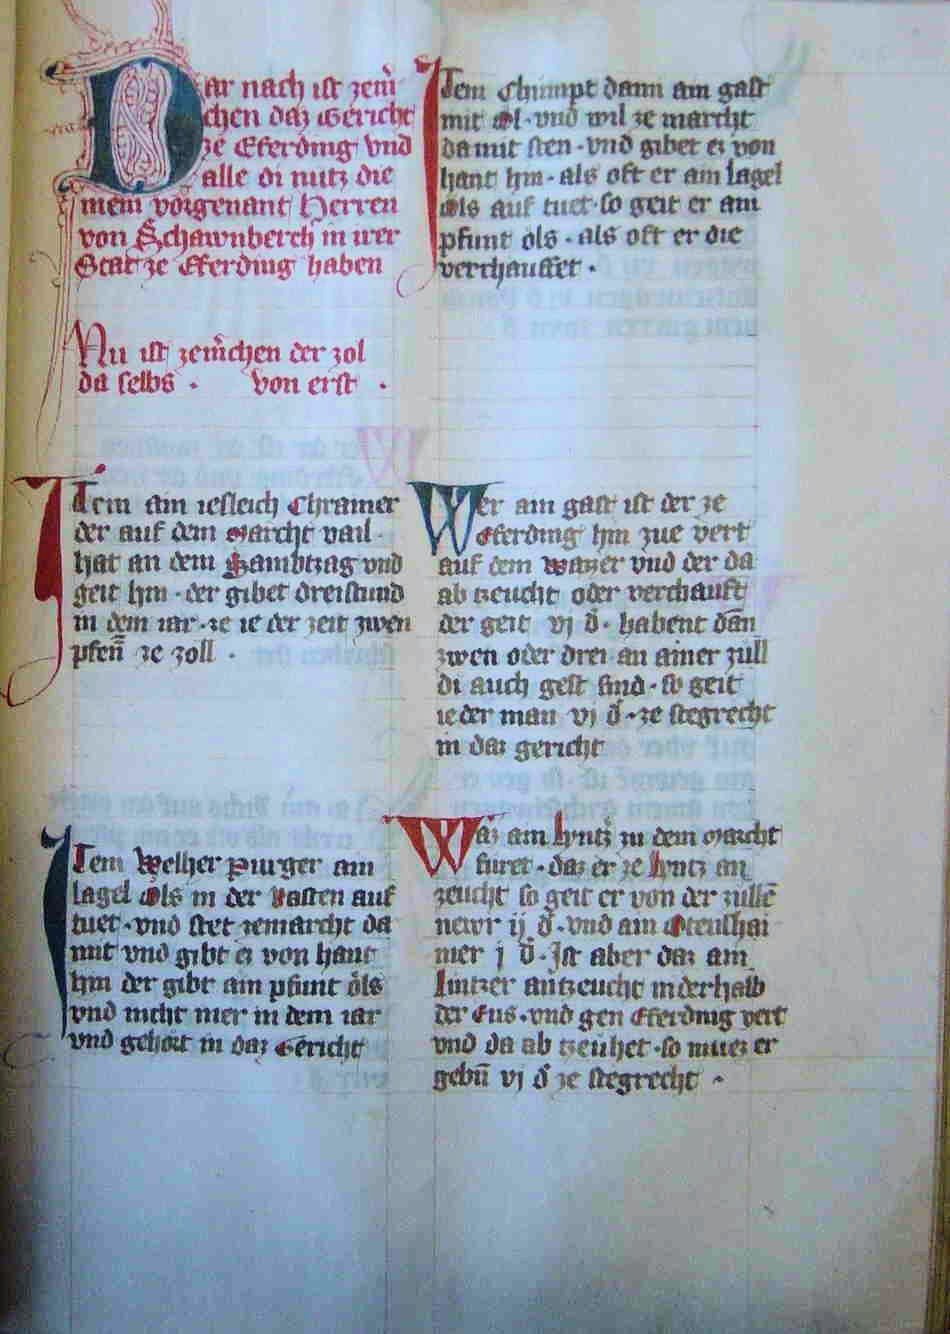 Dar nach ist zem̄
chen daz Gericht
ze Eferding vnd
alle di nutz die
mein vorgenant Herren
von Schawnberch in irer
Stat ze Eferding haben
Nu ist zem̄chen der zol
da selbs · von erst ·
Item ain iesleich Chramer
der auf dem Marcht vail ·
hat an dem Sambtztag vnd
geit hin · der gibet dreistund
in dem iar · ze ie der zeit zwen
pfen̄ ze zoll ·
Item Welher Purger ain
lagel Ols in der Vasten auf
tuet · vnd stet ze marcht da
mit vnd gibt ez von hant
hin der gibt ain pfunt öls
vnd nicht mer in dem iar
vnd gehört in daz Gericht
Item Chumpt dann ain gast
mit Ol · vnd wil ze marcht
da mit sten · vnd gibet ez von
hant hin · als oft er ain lagel
Ols auf tuet · so geit er ain
pfunt öls · als oft er die
verchauffet ·
Wer ain gast ist der ze
Eferding hin zue vert
auf dem Wazzer vnd der da
ab zeucht oder verchauft
der geit vj d · habent dan̄
zwen oder drei an ainer züll
di auch gest sind · so geit
ieder man vj d · ze stegrecht
in daz gericht
Waz ain lyntz̉ zu dem Marcht
füret · daz er ze lyntz an
zeucht so geit er von der züllē
newr ij d · vnd ain Steushai
mer j d · Ist aber daz ain
lintzer anzeucht inderhalb
der Ens · vnd gen Eferding vert
vnd da ab zeuhet · so muez er
gebn̄ vj d ze stegrecht ·